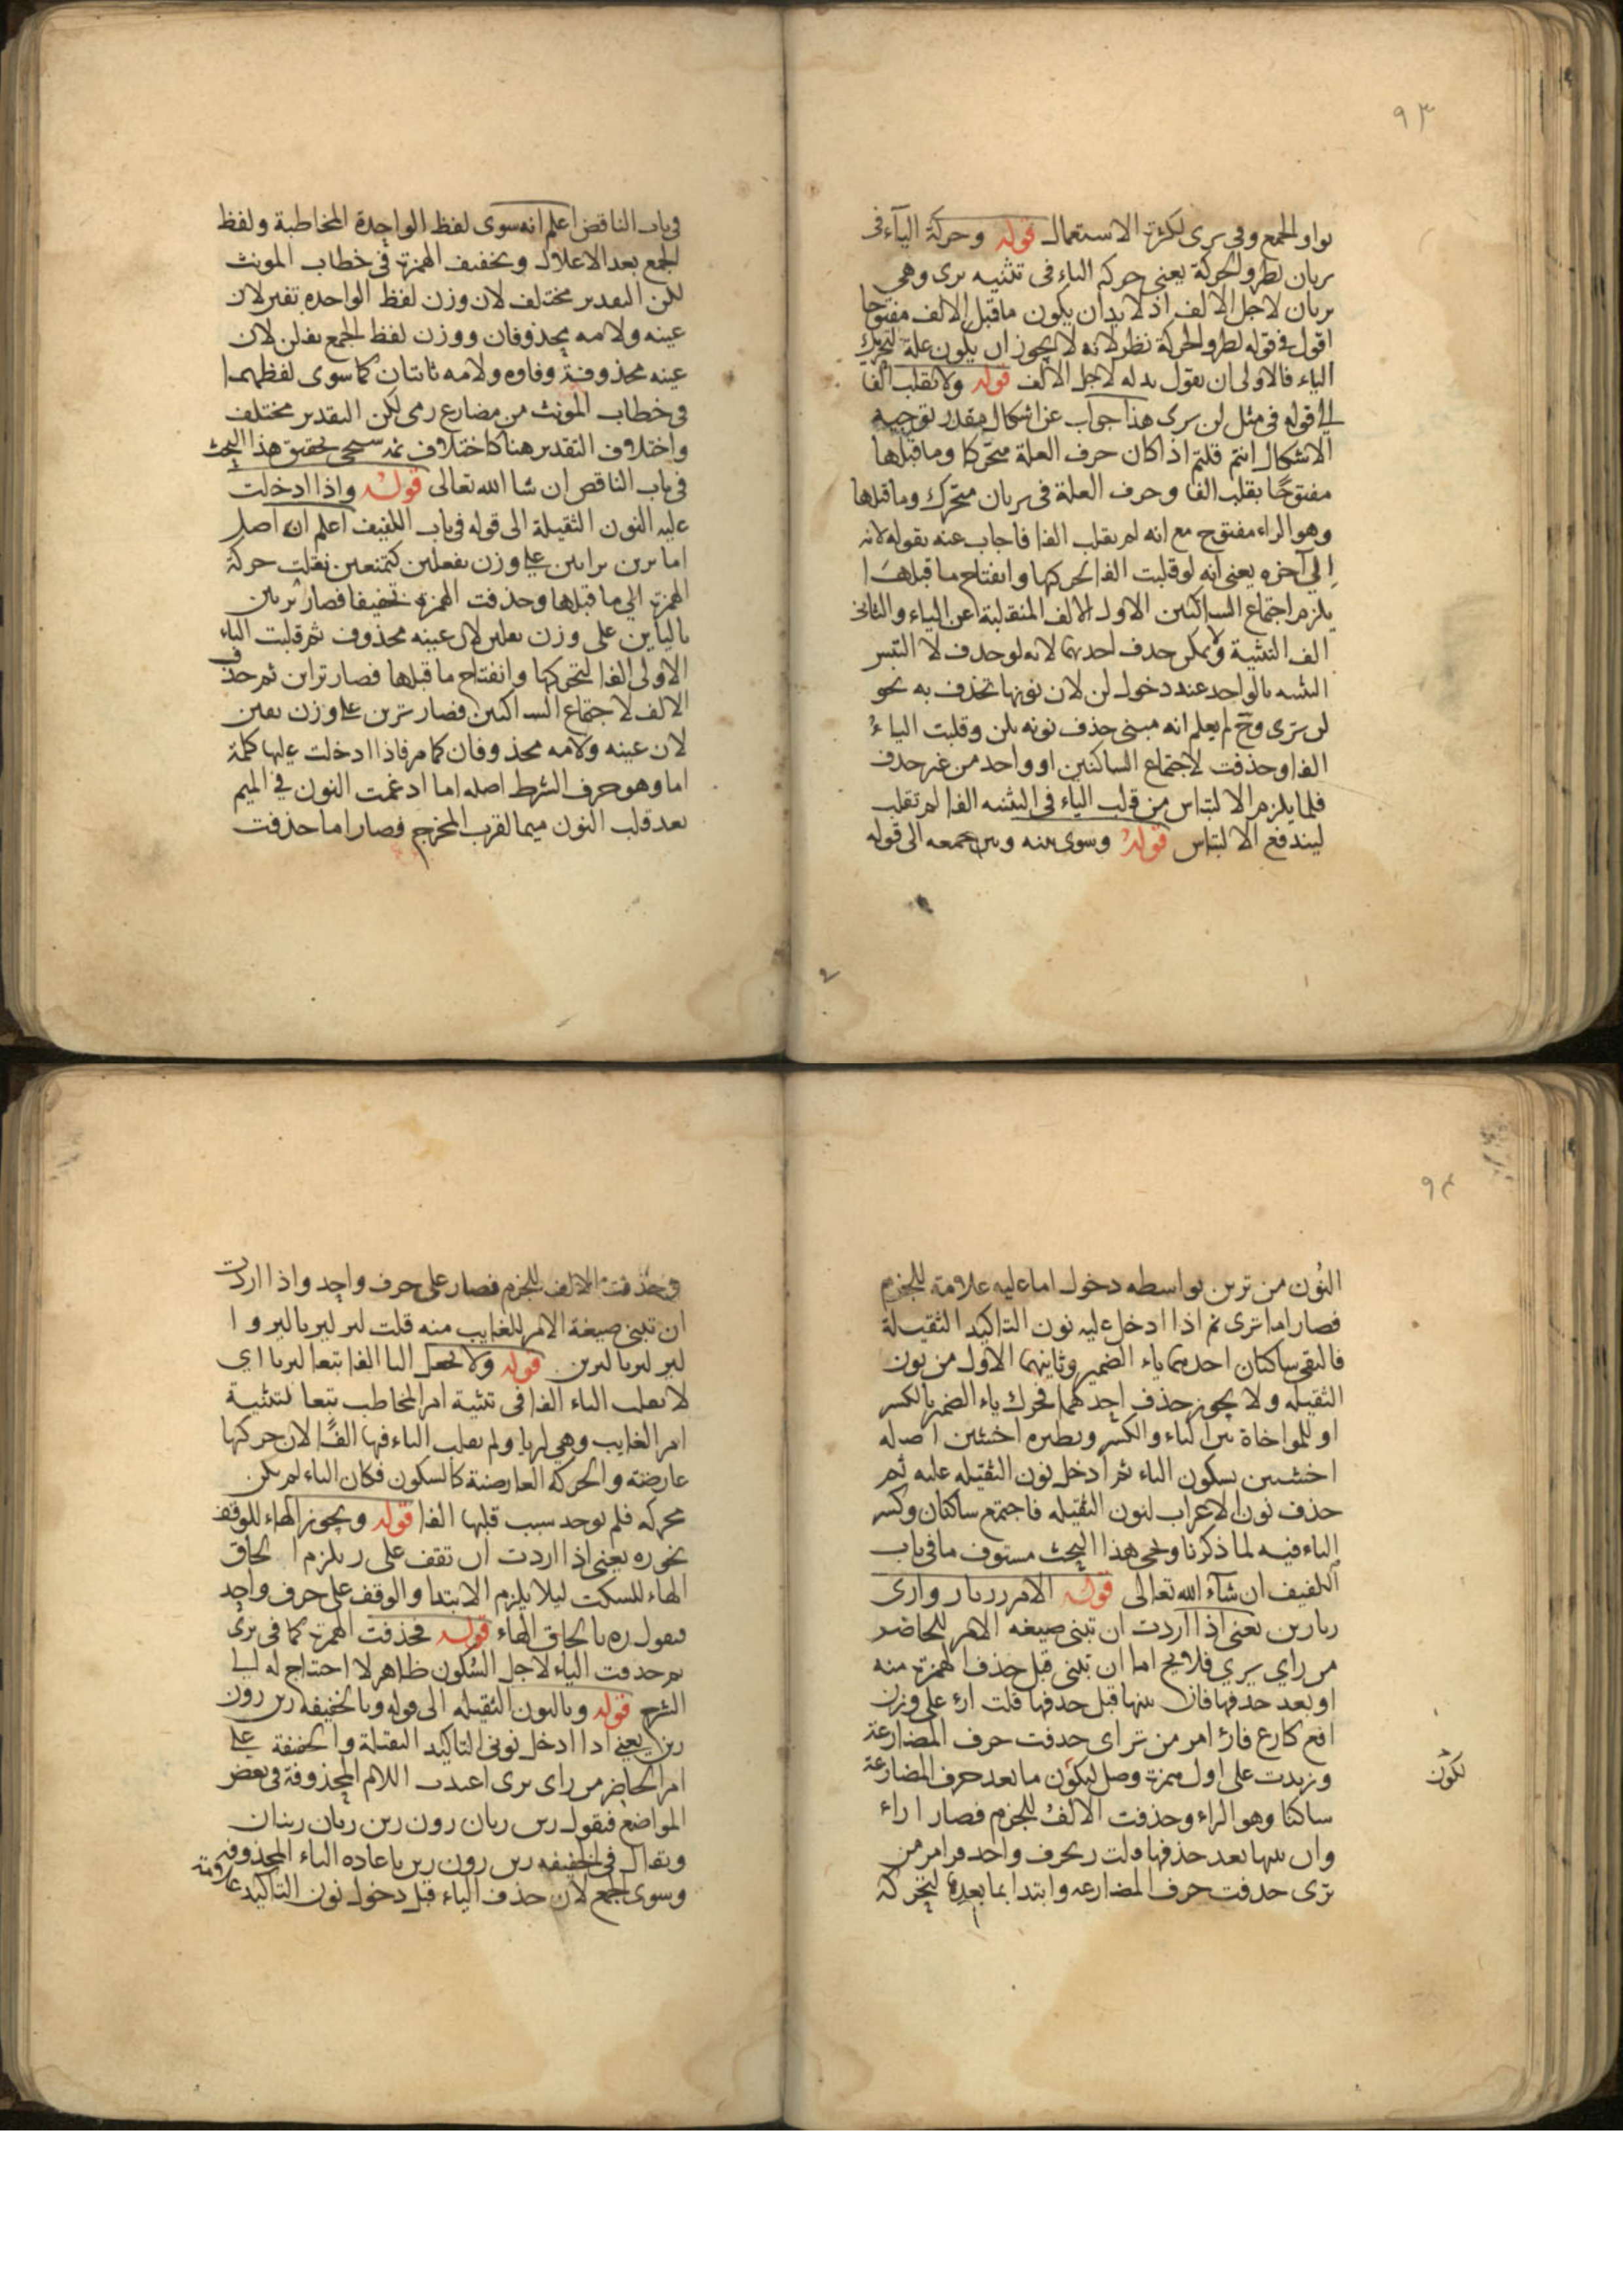 ٩٣
بواو الجمع وفي يرى لكثرة الاستعمال قوله وحركة الياء في
يريان لطرو الحركة يعنى حركه الياء فى تثنيه يرى وهي
يريان لاجل الالف اذ لا بد ان يكون ماقبل الالف مفتوحا
اقول في قوله لطرو الحركة نظر لانه لا يجوز ان يكون علة لتحريك
الياء فالاولى ان يقول بدله لاجل الالف قوله ولا تقلب الفا
الى قوله فى مثل لن يرى هذا جواب عن اشكال مقدر توجيه
الاشكال انتم قلتم اذا كان حرف العلة متحركا وماقبلها
مفتوحًا يقلب الفا وحرف العلة فى يريان متحرك وماقبلها
وهو الراء مفتوح مع انه لم يقلب الفا فاجاب عنه بقوله لانه
إلى آخره يعنى انه لو قلبت الفا لتحركها وانفتاح ما قبلها
يلزم اجتماع الساكنين الاول الالف المنقلبة عن الياء والثانى
الف التثنية ولا يمكن حدف احديهما لانه لو حدف لا التبس
التثنيه بالواحد عند دخول لن لان نونها تحذف به نحو
لن ترى وح لم يعلم انه مبنى حذف نونه بلن وقلبت الياء
الفا وحذفت لاجتماع الساكنين او واحد من غير حدف
فلما يلزم الالتباس من قلب الياء فى التثنيه الفا لم تقلب
ليندفع الالتباس قوله وسوى بينه وبين جمعه الى قوله
فى باب الناقص اعلم انه سوى لفظ الواحدة المخاطبة ولفظ
الجمع بعد الاعلال وتخفيف الهمزة فى خطاب المونث
لكن التقدير مختلف لان وزن لفظ الواحده تفين لان
عينه ولامه محذوفان ووزن لفظ الجمع تفلن لان
عينه محذوفة وفاوه ولامه ثابتان كما سوى لفظهما
فى خطاب المونث من مضارع رمى لكن التقدير مختلف
واختلاف التقدير هنا كاختلاف ثمه سيجى تحقيق هذا البحث
فى باب الناقص ان شا الله تعالى قوله واذا ادخلت
عليه النون الثقيلة الى قوله فى باب اللفيف اعلم ان اصل
اما ترين ترايين على وزن تفعلين كتمنعين نقلت حركة
الهمزة الى ما قبلها وحذفت الهمزة تخفيفا فصار تريين
باليأين على وزن تفلين لان عينه محذوف ثم قلبت الياء
الاولى الفا لتحركها وانفتاح ما قبلها فصار تراين ثم حذف
الالف لاجتماع الساكنين فصار ترين على وزن تفين
لان عينه ولامه محذوفان كما مر فاذا ادخلت عليها كلمة
اما وهو حرف الشرط اصله اما ادغمت النون في الميم
بعد قلب النون ميما لقرب المخرج فصار اما حذفت
٩٤
النون من ترين بواسطه دخول اما عليه علامة للجزم
فصار اما ترى ثم اذا ادخل عليه نون التاكيد الثقيلة
فالتقى ساكنان احدهما ياء الضمير وثانيهما الاول من نون
الثقيله ولا يجوز حذف احدهما فحرك ياء الضمير بالكسر
او للمواخاة بين الياء والكسر ونظيره اخشين اصله
اخشيين بسكون الياء ثم ادخل نون الثقيله عليه ثم
حذف نون الاعراب لنون الثقيله فاجتمع ساكنان وكسر
الياء فيه لما ذكرنا ويجى هذا البحث مستوف ما فى باب
اللفيف ان شآء الله تعالى قوله الامر ر ريا ر وا رى
ريا رين يعنى اذا اردت ان تبنى صيغه الامر للحاضر
من راي يري فلا يخ اما ان تبنى قبل حذف الهمزة منه
او بعد حذفها فان بنيتها قبل حدفها قلت ارء على وزن
افع كارع فارء امر من تراى حدفت حرف المضارعة
وزيدت على اوله همزة وصل ليكون ما بعد حرف المضارعة
ساكنا وهو الراء وحذفت الالف للجزم فصار ا راء
وان بنيتها بعد حذفها قلت ر بحرف واحد فر امر من
ترى حدفت حرف المضارعه وابتدا بما بعده لتحركه
لكون
وحذفت الالف للجزم فصار على حرف واحد واذا اردت
ان تبنى صيغة الامر للغايب منه قلت لير ليريا ليروا
لتر لتريا ليرين قوله ولا تجعل اليا الفا تبعا ليريا اي
لا تقلب الياء الفا فى تثنية امر المخاطب تبعا لتثنية
امر الغايب وهي ليريا ولم تقلب الياء فيها الفًا لان حركتها
عارضة والحركة العارضة كالسكون فكان الياء لم يكن
محركه فلم يوجد سبب قلبها الفا قوله ويجوز الهاء للوقف
نحو ره يعنى اذا اردت ان تقف على ر يلزم الحاق
الهاء للسكت ليلا يلزم الابتدا والوقف على حرف واحد
فيقول ره بالحاق الهاء قوله فحذفت الهمزة كما فى ترى
ثم حدفت الياء لاجل السكون ظاهر لا احتاج له الى
الشرح قوله وبالنون الثقيله الى قوله وبالخفيفه رين رون
رين يعنى اذا ادخل نونى التاكيد الثقيلة والخفيفة على
امر الحاضر من راى يرى اعيدت اللام المحذوفة فى بعض
المواضع فيقول رين ريان رون رين ريان رينان
ويقال فى الخفيفه رين رون رين باعاده الياء المحذوفه
وسوى الجمع لان حذف الياء قبل دخول نون التاكيد علامة